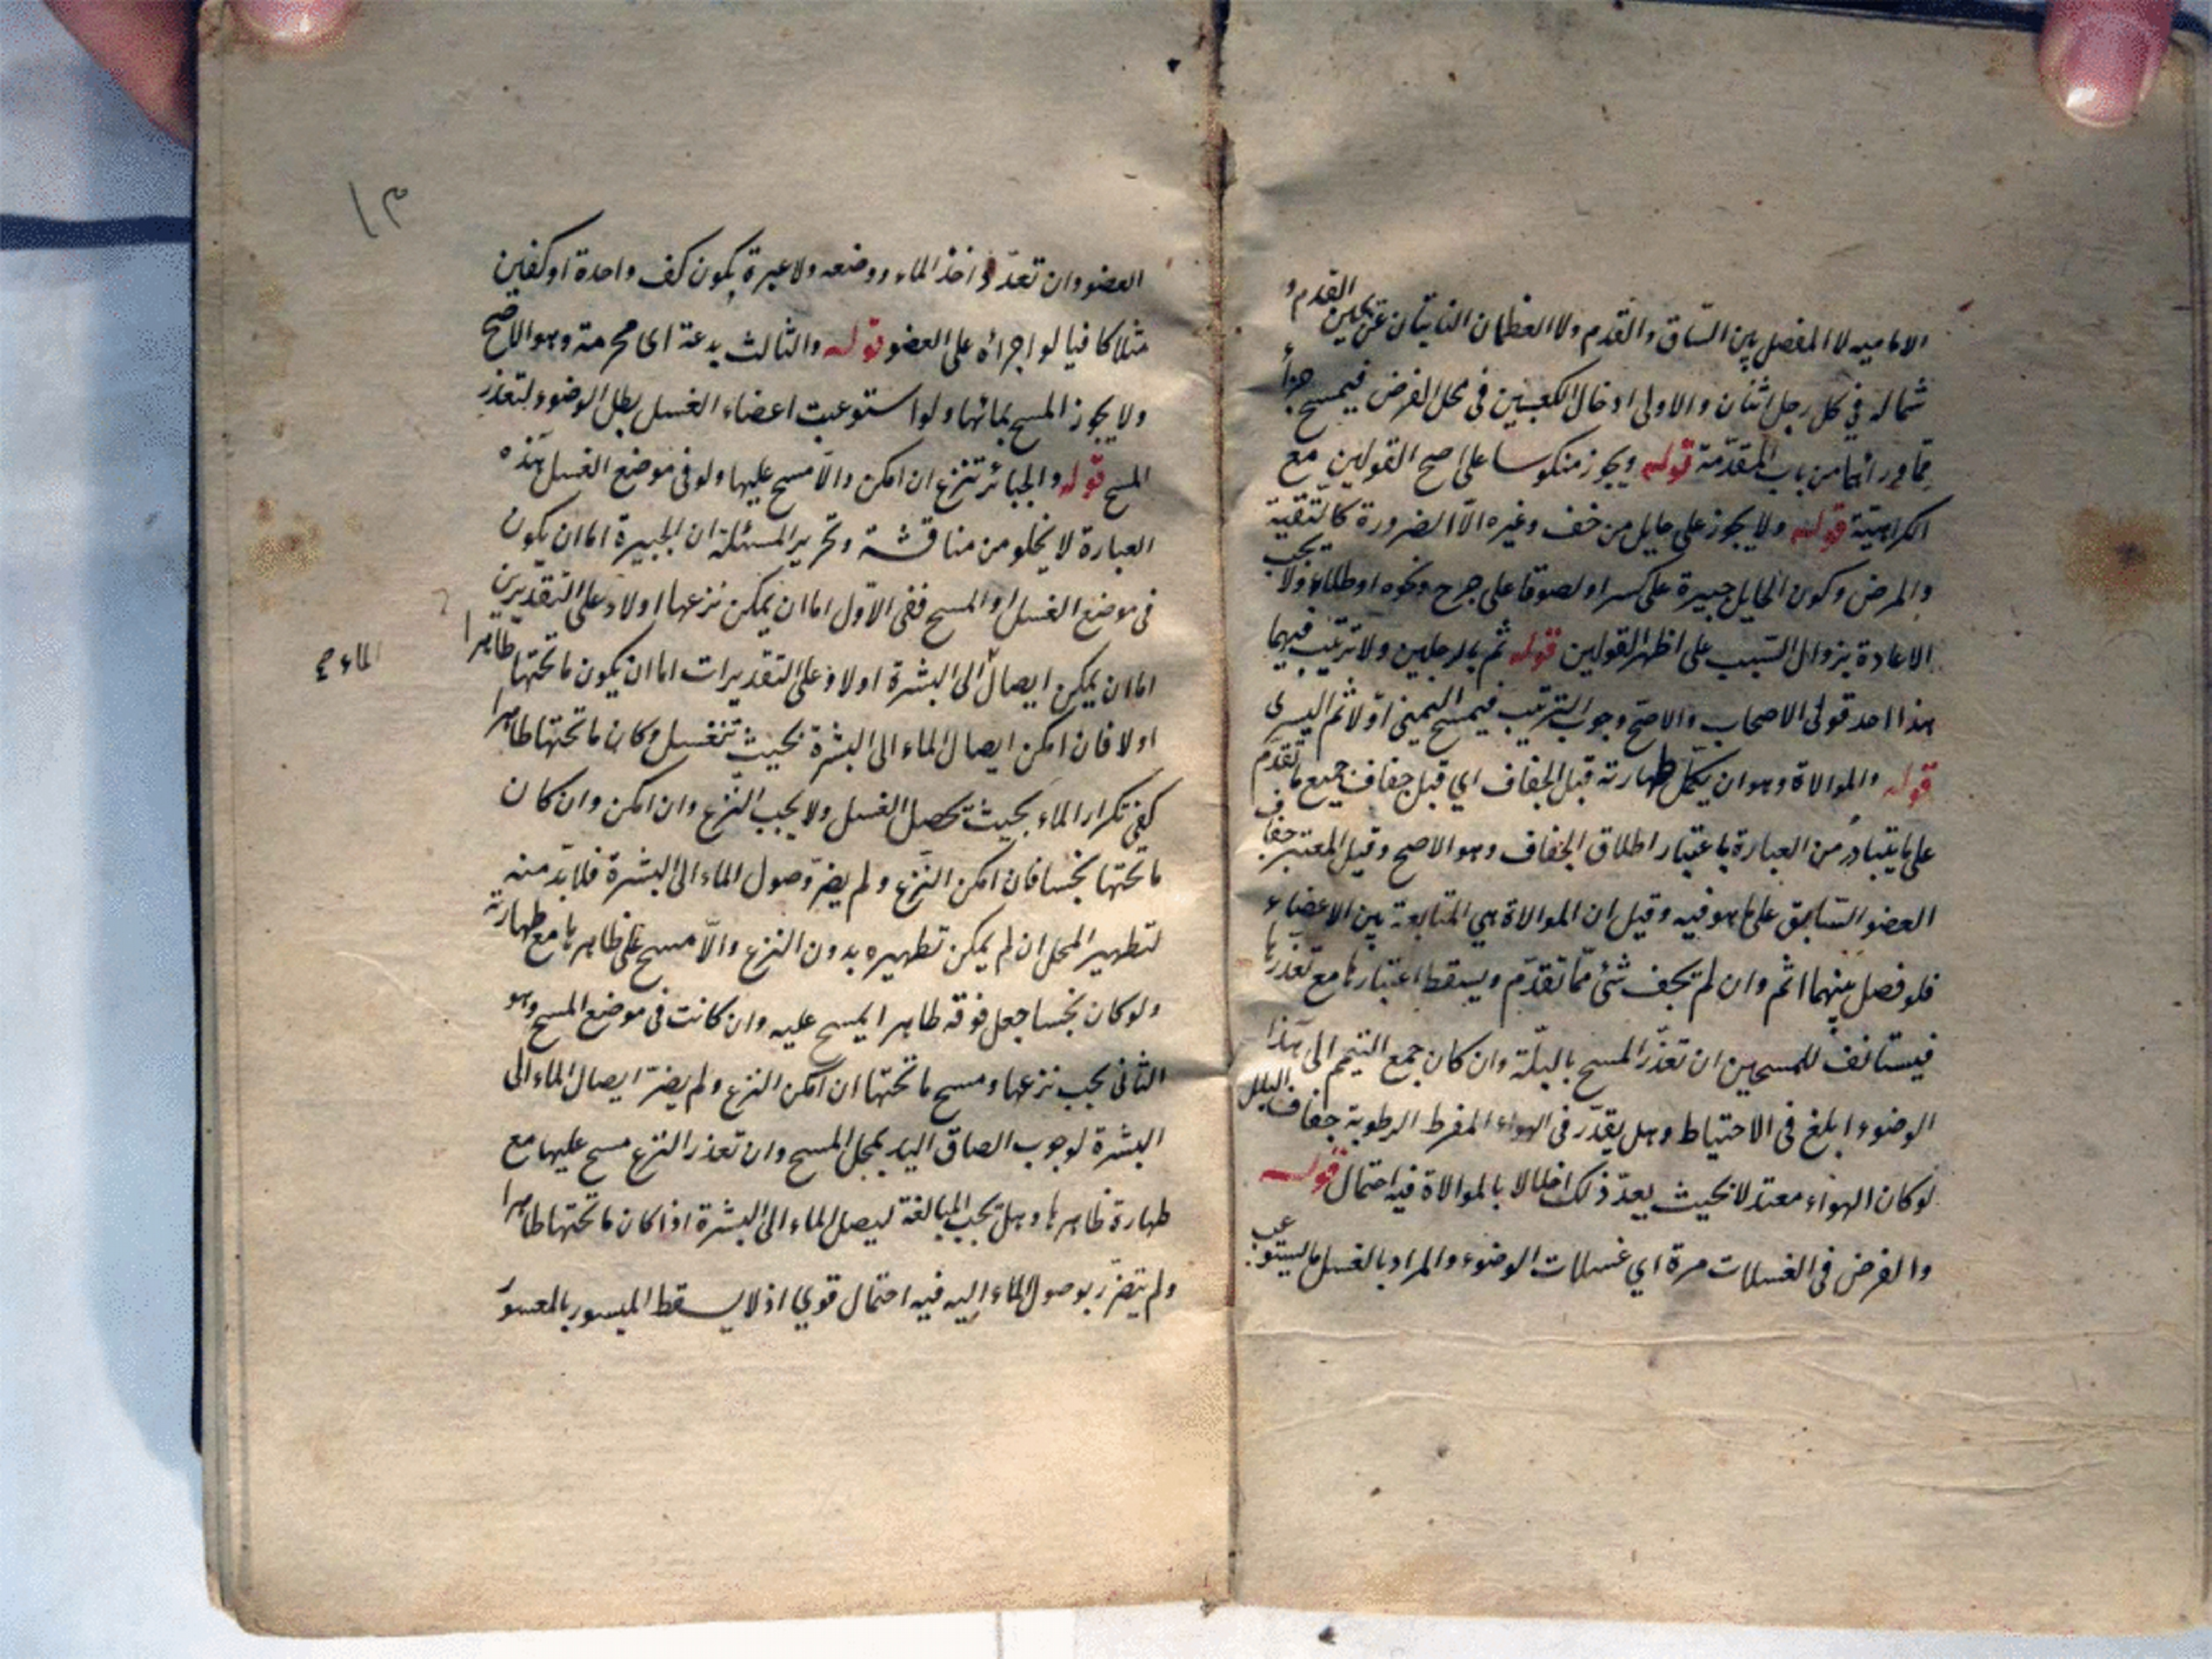 الامامیه لا المفصل بین السّاق والقدم ولا العظمان الناتیان عن یمین القدم و
شماله فی کل رجل اثنان والاولی ادخال الکعبین فی محل الفرض فیمسح جزأ
مما ورائهما من باب المقدّمة قوله ویجوز منکوسا علی اصح القولین مع
الکراهیّة قوله ولا یجوز علی حایل من خف وغیره الّا الضرورة کالتقیّة
والمرض وکون الحایل جبیرة علی کسر او لصوقا علی جرح ونحوه او طلاء ولا یجب
الاعادة بزوال السّبب علی اظهر القولین قوله ثم بالرجلین ولا ترتیب فیهما
هذا احد قولی الاصحاب والاصح وجوب الترتیب فیمسح الیمنی اوّلا ثم الیسری
قوله والموالاة وهو ان یکمّل طهارته قبل الجفاف ای قبل جفاف جمیع ما تقدّم
علی ما یتبادر من العبارة باعتبار اطلاق الجفاف وهو الاصح وقیل المعتبر جفاف
العضو السّابق علی ما هو فیه وقیل ان الموالاة هی المتابعة بین الاعضاء
فلو فصل بینهما اثم وان لم یجف شئ ممّا تقدّم ویسقط اعتبارها مع تعذرها
فیستانف للمسحین ان تعذّر المسح بالبلّة وان کان جمع التیمم الی هذا
الوضوء ابلغ فی الاحتیاط وهل یقدّر فی الهواء المفرط الرطوبة جفاف البلل
لو کان الهواء معتدلا بحیث یعدّ ذلک اخلالا بالموالاة فیه احتمال قوله
والفرض فی الغسلات مرة ای غسلات الوضوء والمراد بالغسل ما یستوعب
۱۳
العضو وان تعدّد اخذ الماء ووضعه ولا عبرة بکون کف واحدة او کفین
مثلا کافیا لو اجراه علی العضو قوله والثالث بدعة ای محرمة وهو الاصح
ولا یجوز المسح بمائها ولو استوعبت اعضاء الغسل بطل الوضوء لتعذر
المسح قوله والجبائر تنزع ان امکن والّا مسح علیها ولو فی موضع الغسل هذه
العبارة لا یخلو من مناقشة وتحریر المسئلة ان الجبیرة اما ان یکون
فی موضع الغسل او المسح ففی الاوّل اما ان یمکن نزعها اولا وعلی التّقدیرین
اما ان یمکن ایصال الی البشرة اولا وعلی التقدیرات اما ان یکون ما تحتها طاهرا
الماء صح
اولا فان امکن ایصال الماء الی البشرة بحیث تنغسل وکان ما تحتها طاهرا
کفی تکرار الماء بحیث یحصل الغسل ولا یجب النّزع وان امکن وان کان
ما تحتها نجسا فان امکن النّزع ولم یضرّ وصول الماء الی البشرة فلا بدّ منه
لتطهیر المحل ان لم یمکن تطهیره بدون النزع والّا مسح علی ظاهرها مع طهارته
ولو کان نجسا جعل فوقه طاهرا یمسح علیه وان کانت فی موضع المسح وهو
الثانی یجب نزعها ومسح ما تحتها ان امکن النزع ولم یضرّ ایصال الماء الی
البشرة لوجوب الصاق الید بمحل المسح وان تعذر النزع مسح علیها مع
طهارة ظاهرها وهل یجب المبالغة لیصل الماء الی البشرة اذا کان ما تحتها طاهرا
ولم یتضرّر بوصول الماء الیه فیه احتمال قوی اذ لا یسقط المیسور بالمعسور